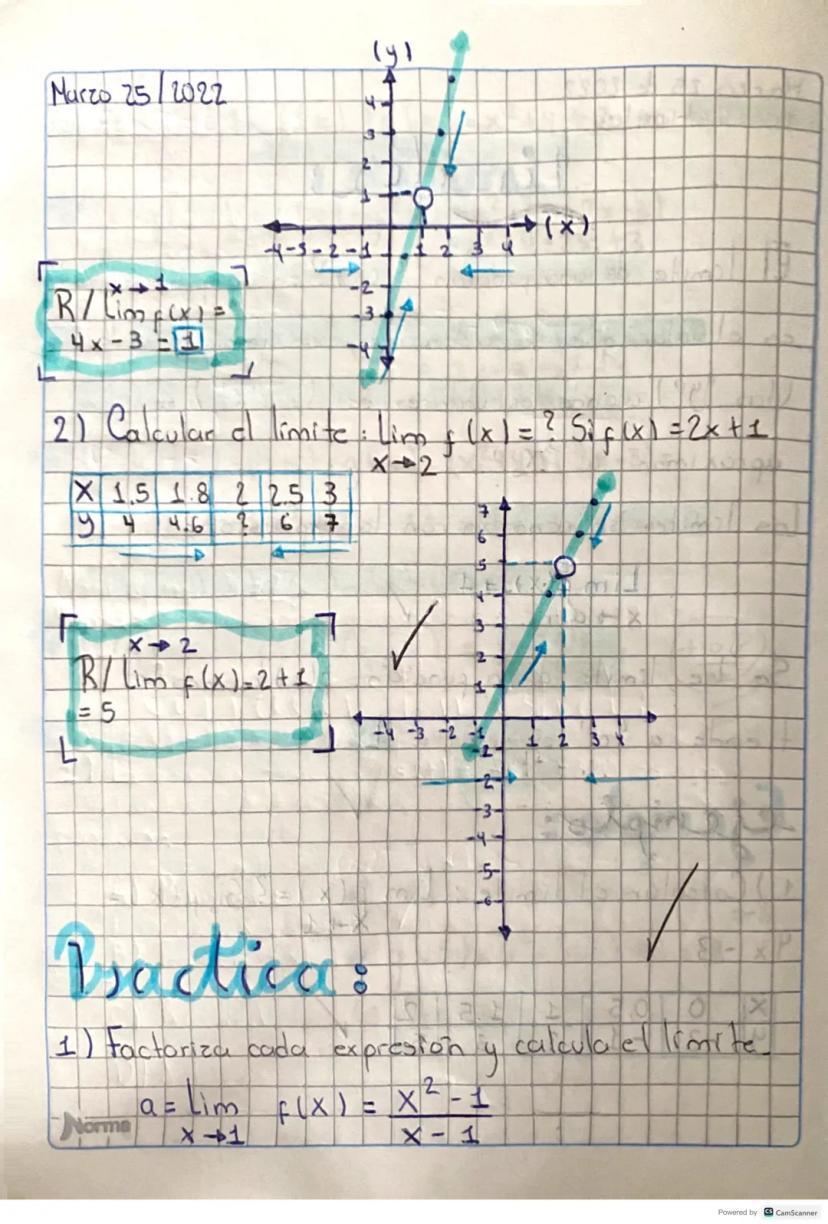 (y)
Marzo 25/2022
4
3
2
1
-4 -3 -2 -1 1 2 3 4 (x)
-2
-3
-4
x → 1
R/ Lim f(x) =
4x - 3 = 1
2) Calcular el límite: Lim f(x) = ? Si f(x) = 2x + 1
x → 2
X 1.5 1.8 2 2.5 3
y 4 4.6 ? 6 7
7
6
5
4
3
2
1
-4 -3 -2 -1 1 2 3 4
-1
-2
-3
-4
-5
-6
x → 2
R/ Lim f(x) = 2 + 1
= 5
Practica:
1) Factoriza cada expresión y calcula el límite
a = Lim f(x) = x² - 1
x → 1 x - 1
Norma
Powered by CS CamScanner